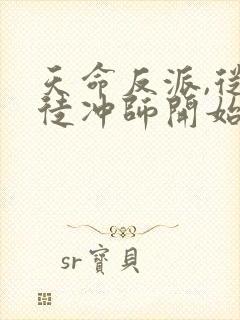 天命反派,從
徒沖師開始
sr寶貝